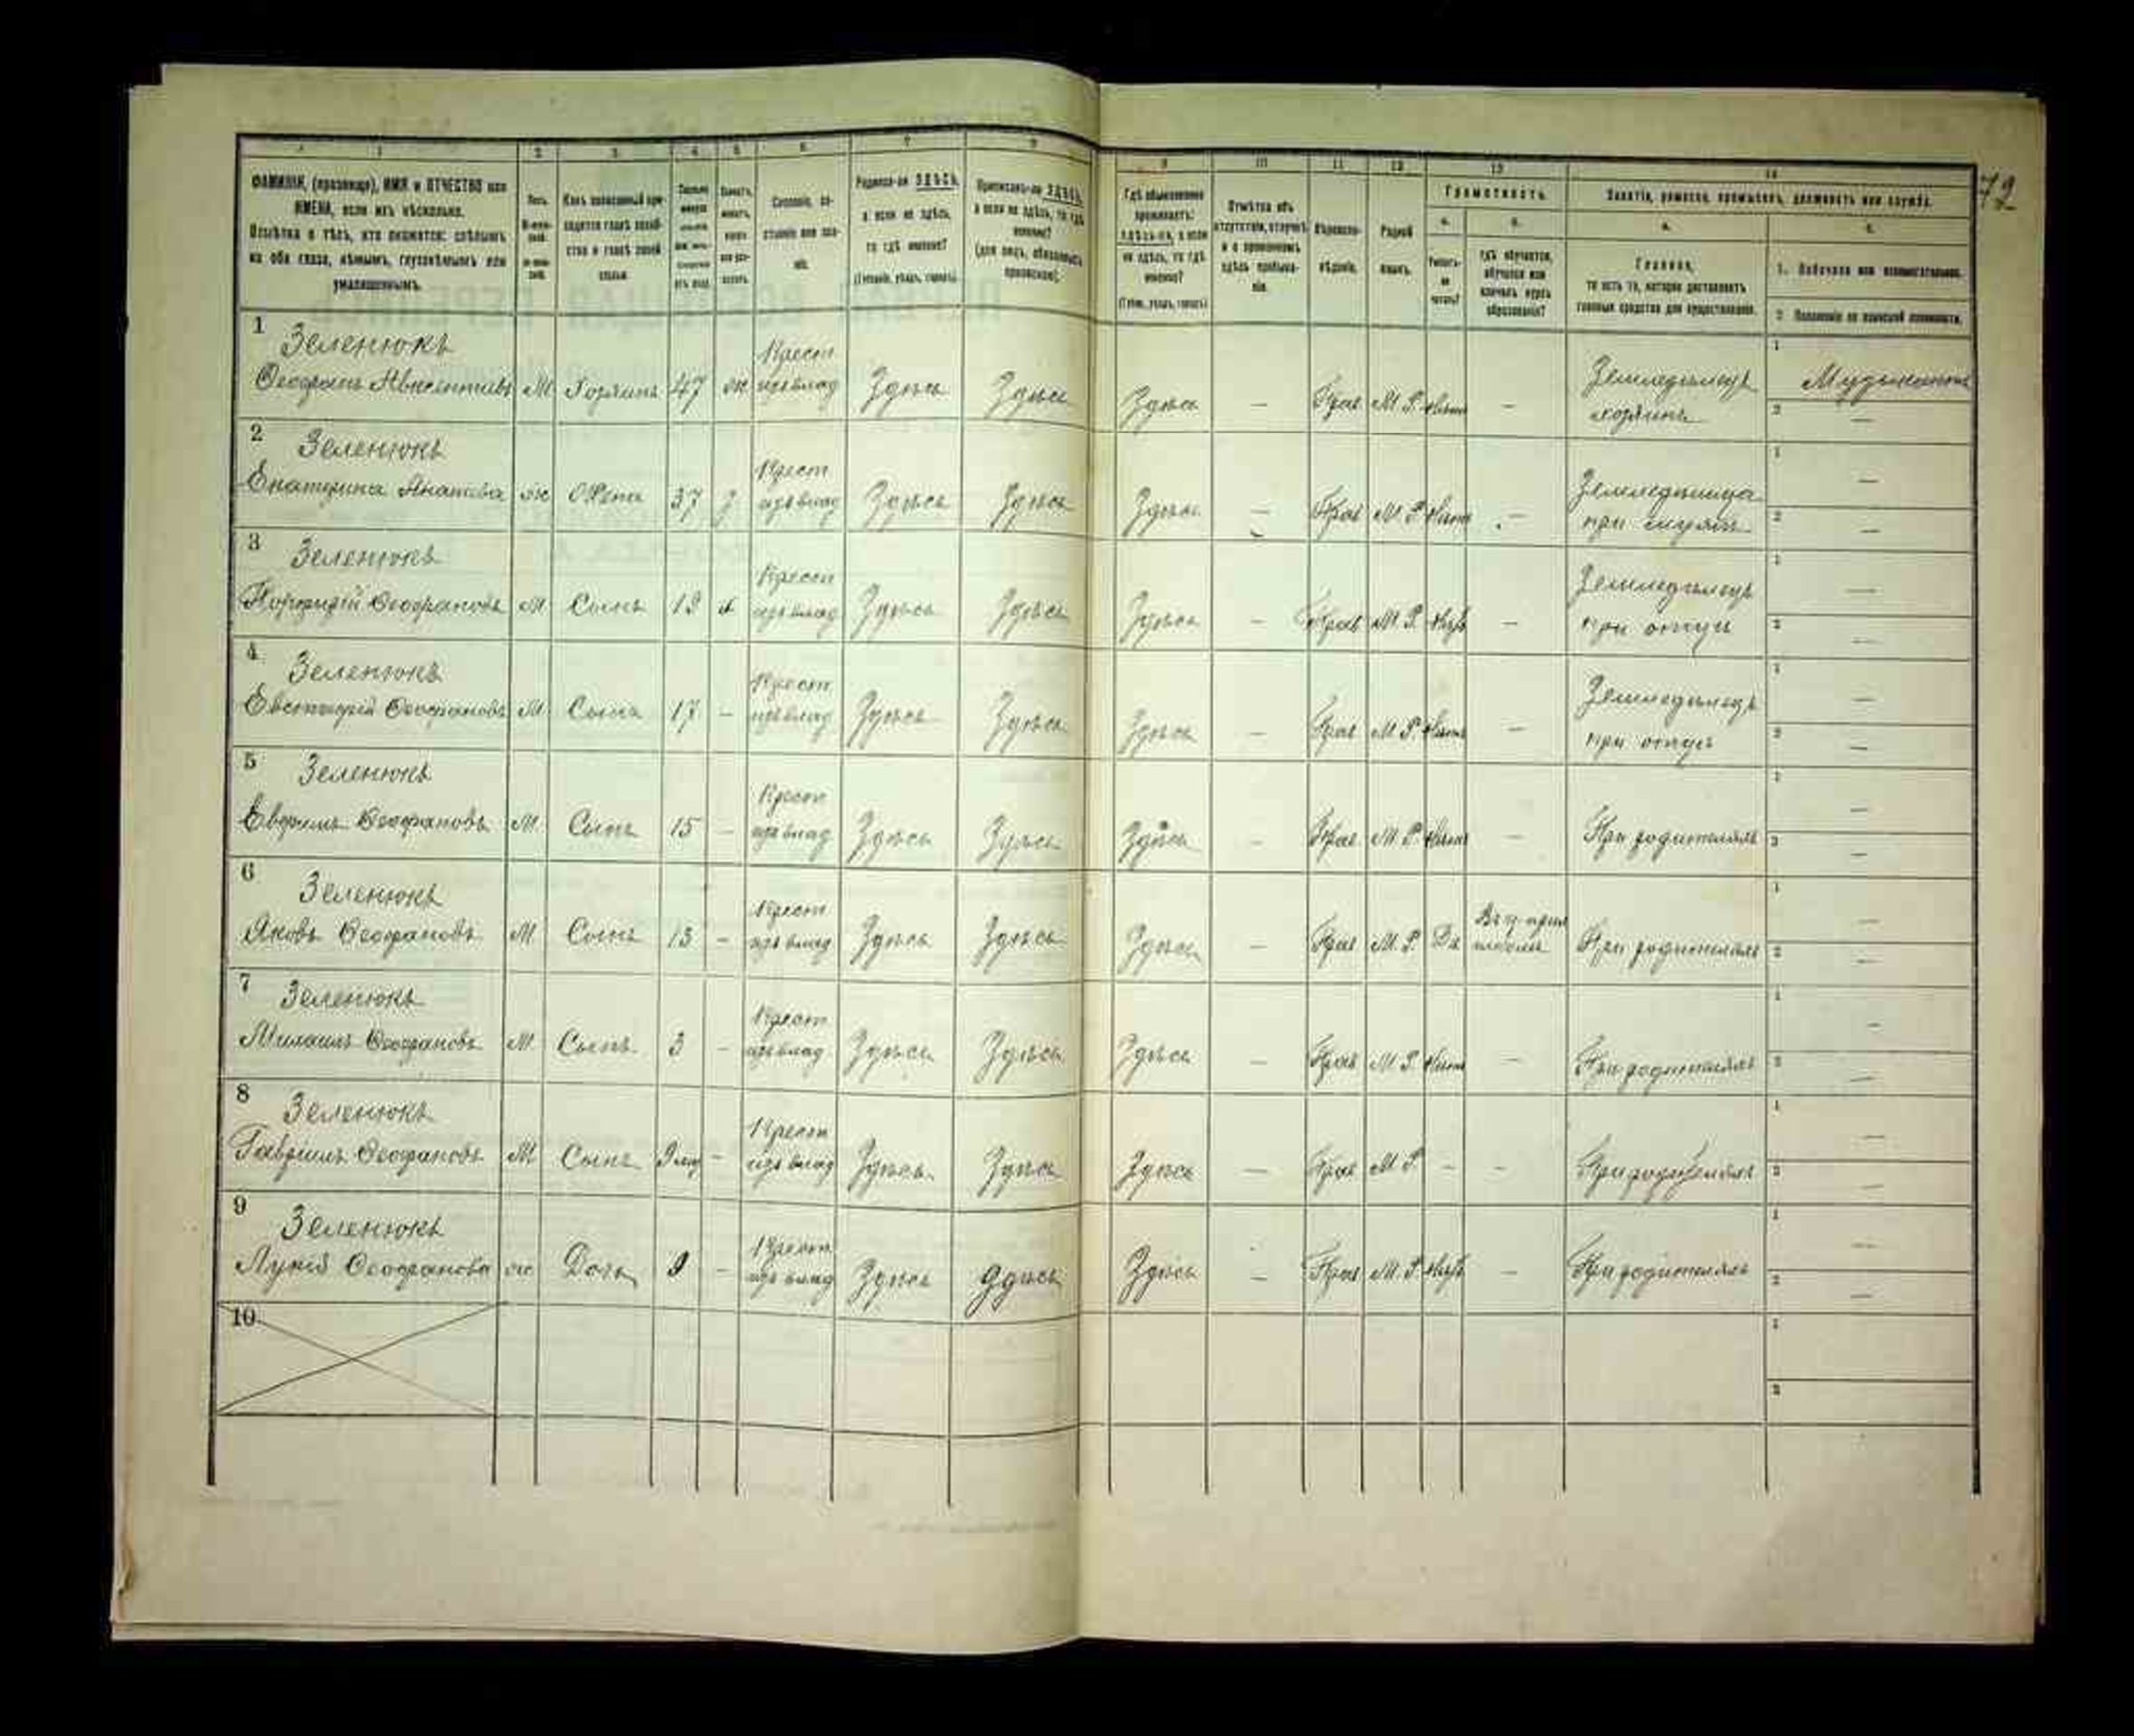 72
1 2 3 4 5 6 7 8 9 10 11 12 13 14
ФАМИЛІЯ, (прозвище), ИМЯ и ОТЧЕСТВО или
ИМЕНА, если ихъ нѣсколько.
Отмѣтка о тѣхъ, кто окажется: слѣпымъ
на оба глаза, нѣмымъ, глухонѣмымъ или
умалишеннымъ.
Родился-ли ЗДѢСЬ,
а если не здѣсь,
то гдѣ именно?
(Губернія, уѣздъ, городъ).
Приписанъ-ли ЗДѢСЬ,
а если не здѣсь, то гдѣ
именно?
Гдѣ обыкновенно
проживаетъ:
здѣсь-ли, а если
не здѣсь, то гдѣ
именно?
(Губ., уѣздъ, городъ)
Отмѣтка объ
отсутствіи, отлучкѣ
и о временномъ
здѣсь пребыва-
ніи.
Вѣроиспо-
вѣданіе.
Родной
языкъ.
Грамотность.
а. б.
Умѣетъ-
ли
читать?
гдѣ обучается,
обучался или
кончилъ курсъ
образованія?
Занятіе, ремесло, промыселъ, должность или служба.
а. б.
Главное,
то есть то, которое доставляетъ
главныя средства для существованія.
1. Побочное или вспомогательное.
2. Положеніе по воинской повинности.
1 Зеленюкъ
М Хозяинъ 47 ж Крест. изъ влад. Здѣсь Здѣсь Здѣсь — Прав М. Р. Нѣтъ — Земледѣлецъ хозяинъ 1 Музыкантъ 2 —
2 Зеленюкъ
Екатерина ж Жена 37 з Крест. изъ влад. Здѣсь Здѣсь Здѣсь — Прав М. Р. Нѣтъ — при 1 — 2 —
3 Зеленюкъ
Порфирій Ѳеофановъ М Сынъ Крест. изъ влад. Здѣсь Здѣсь Здѣсь — Прав М. Р. — Земледѣлецъ при отцѣ 1 — 2 —
4 Зеленюкъ
Евстафій Ѳеофановъ М Сынъ 17 — Крест. изъ влад. Здѣсь Здѣсь Здѣсь — Прав М. Р. Нѣтъ — Земледѣлецъ при отцѣ 1 — 2 —
5 Зеленюкъ
Евфимъ Ѳеофановъ М Сынъ 15 — Крест. изъ влад. Здѣсь Здѣсь Здѣсь — Прав М. Р. Нѣтъ — При родителяхъ 1 — 2 —
6 Зеленюкъ
Яковъ Ѳеофановъ М Сынъ 13 — Крест. изъ влад. Здѣсь Здѣсь Здѣсь — Прав М. Р. Да школѣ При родителяхъ 1 — 2 —
7 Зеленюкъ
Михаилъ Ѳеофановъ М Сынъ 3 — Крест. изъ влад. Здѣсь Здѣсь Здѣсь — Прав М. Р. Нѣтъ — При родителяхъ 1 — 2 —
8 Зеленюкъ
Гавріилъ Ѳеофановъ М Сынъ — Крест. изъ влад. Здѣсь Здѣсь Здѣсь — Прав М. Р. — — При родителяхъ 1 — 2 —
9 Зеленюкъ
Ѳеофанова ж Дочь 9 — Крест. изъ влад. Здѣсь Здѣсь Здѣсь — Прав М. Р. — При родителяхъ 1 — 2 —
10 1 2